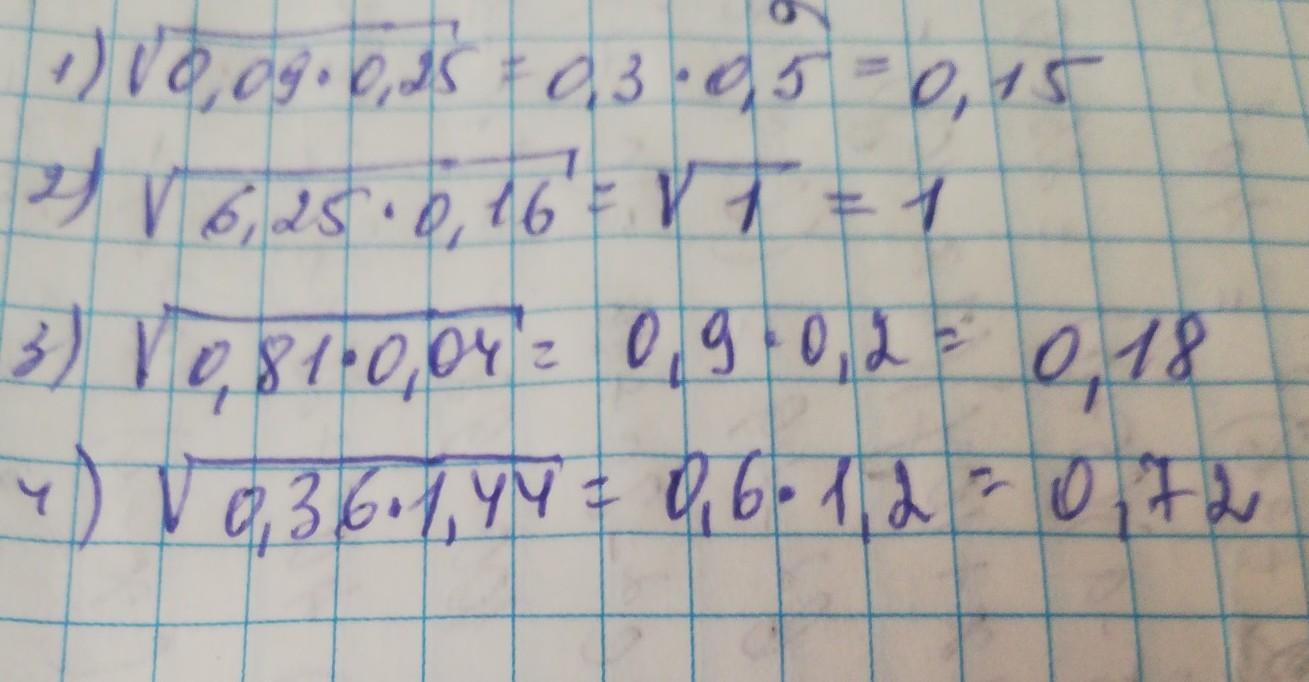 1) √0,09·0,25 = 0,3·0,5 = 0,15
2) √6,25·0,16 = √1 = 1
3) √0,81·0,04 = 0,9·0,2 = 0,18
4) √0,36·1,44 = 0,6·1,2 = 0,72